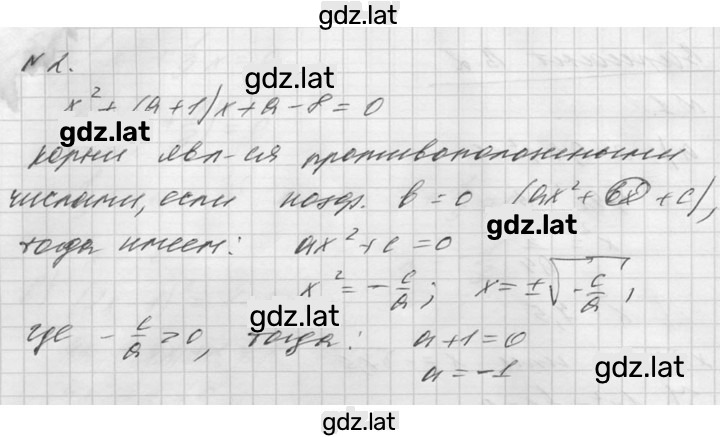 gdz.lat
N 2.
gdz.lat
x² + (a + 1)x + a - 8 = 0
gdz.lat
корни явл-ся противоположными
числами, если коэф. b = 0 (ax² + bx + c),
gdz.lat
тогда имеем: ax² + c = 0
x² = -c/a; x = ±√(-c/a),
gdz.lat
где -c/a > 0, тогда: a + 1 = 0
a = -1
gdz.lat
gdz.lat